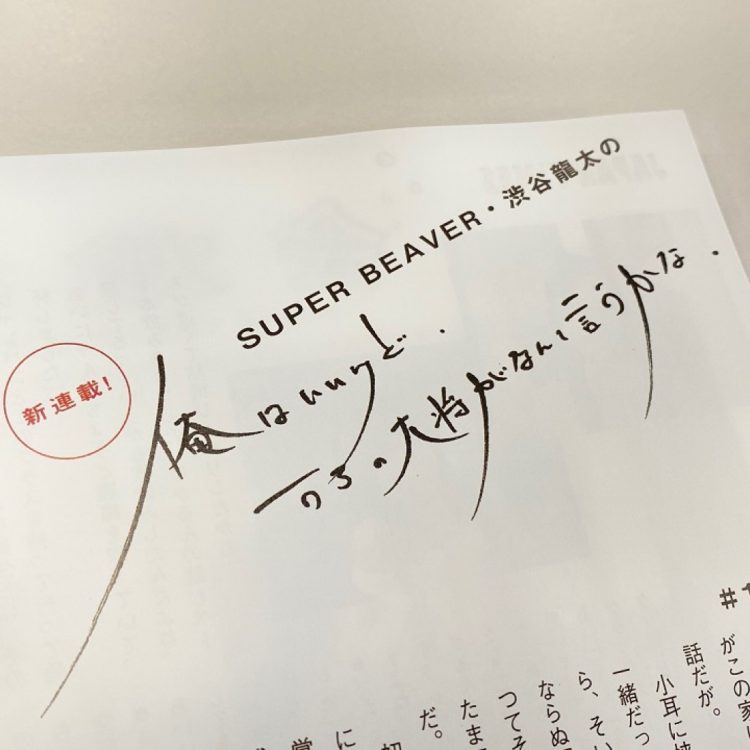 SUPER BEAVER・渋谷龍太の
新連載!
俺はいいけど.
うちの大将がなんて言うかな.
#
がこの家
話だが。
小耳に
一緒だっ
ら、そい
ならぬ
つてそ
たま
だ。
に